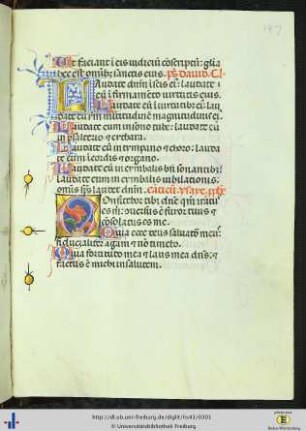 147
Ut faciant i eis iudiciu coscriptu: glia
hec est omib; sanctis eius. ps dauid. cl
Laudate dnm i scis ei: laudate
eu i firmameto uirtutis eius.
Laudate eu i uirtutib; ei: lau
date eu sm multitudine magnitudis ei.
Laudate eum i sono tube: laudate eu
in psalterio et cythara.
Laudate eu in tympano et choro: lauda
te eum i cordis et organo.
Laudate eu in cymbalis bn sonantib;
laudate eum in cymbalis iubilationis:
omis sps laudet dnm.
Confitebor tibi dne qm iratus
es m: conuersus e furor tuus et
cosolatus es me.
Ecce deus saluator meus:
fiducialiter agam et no timebo.
Quia fortitudo mea et laus mea dns: et
factus e michi in salutem.
http://dl.ub.uni-freiburg.de/diglit/hs41/0301
© Universitätsbibliothek Freiburg